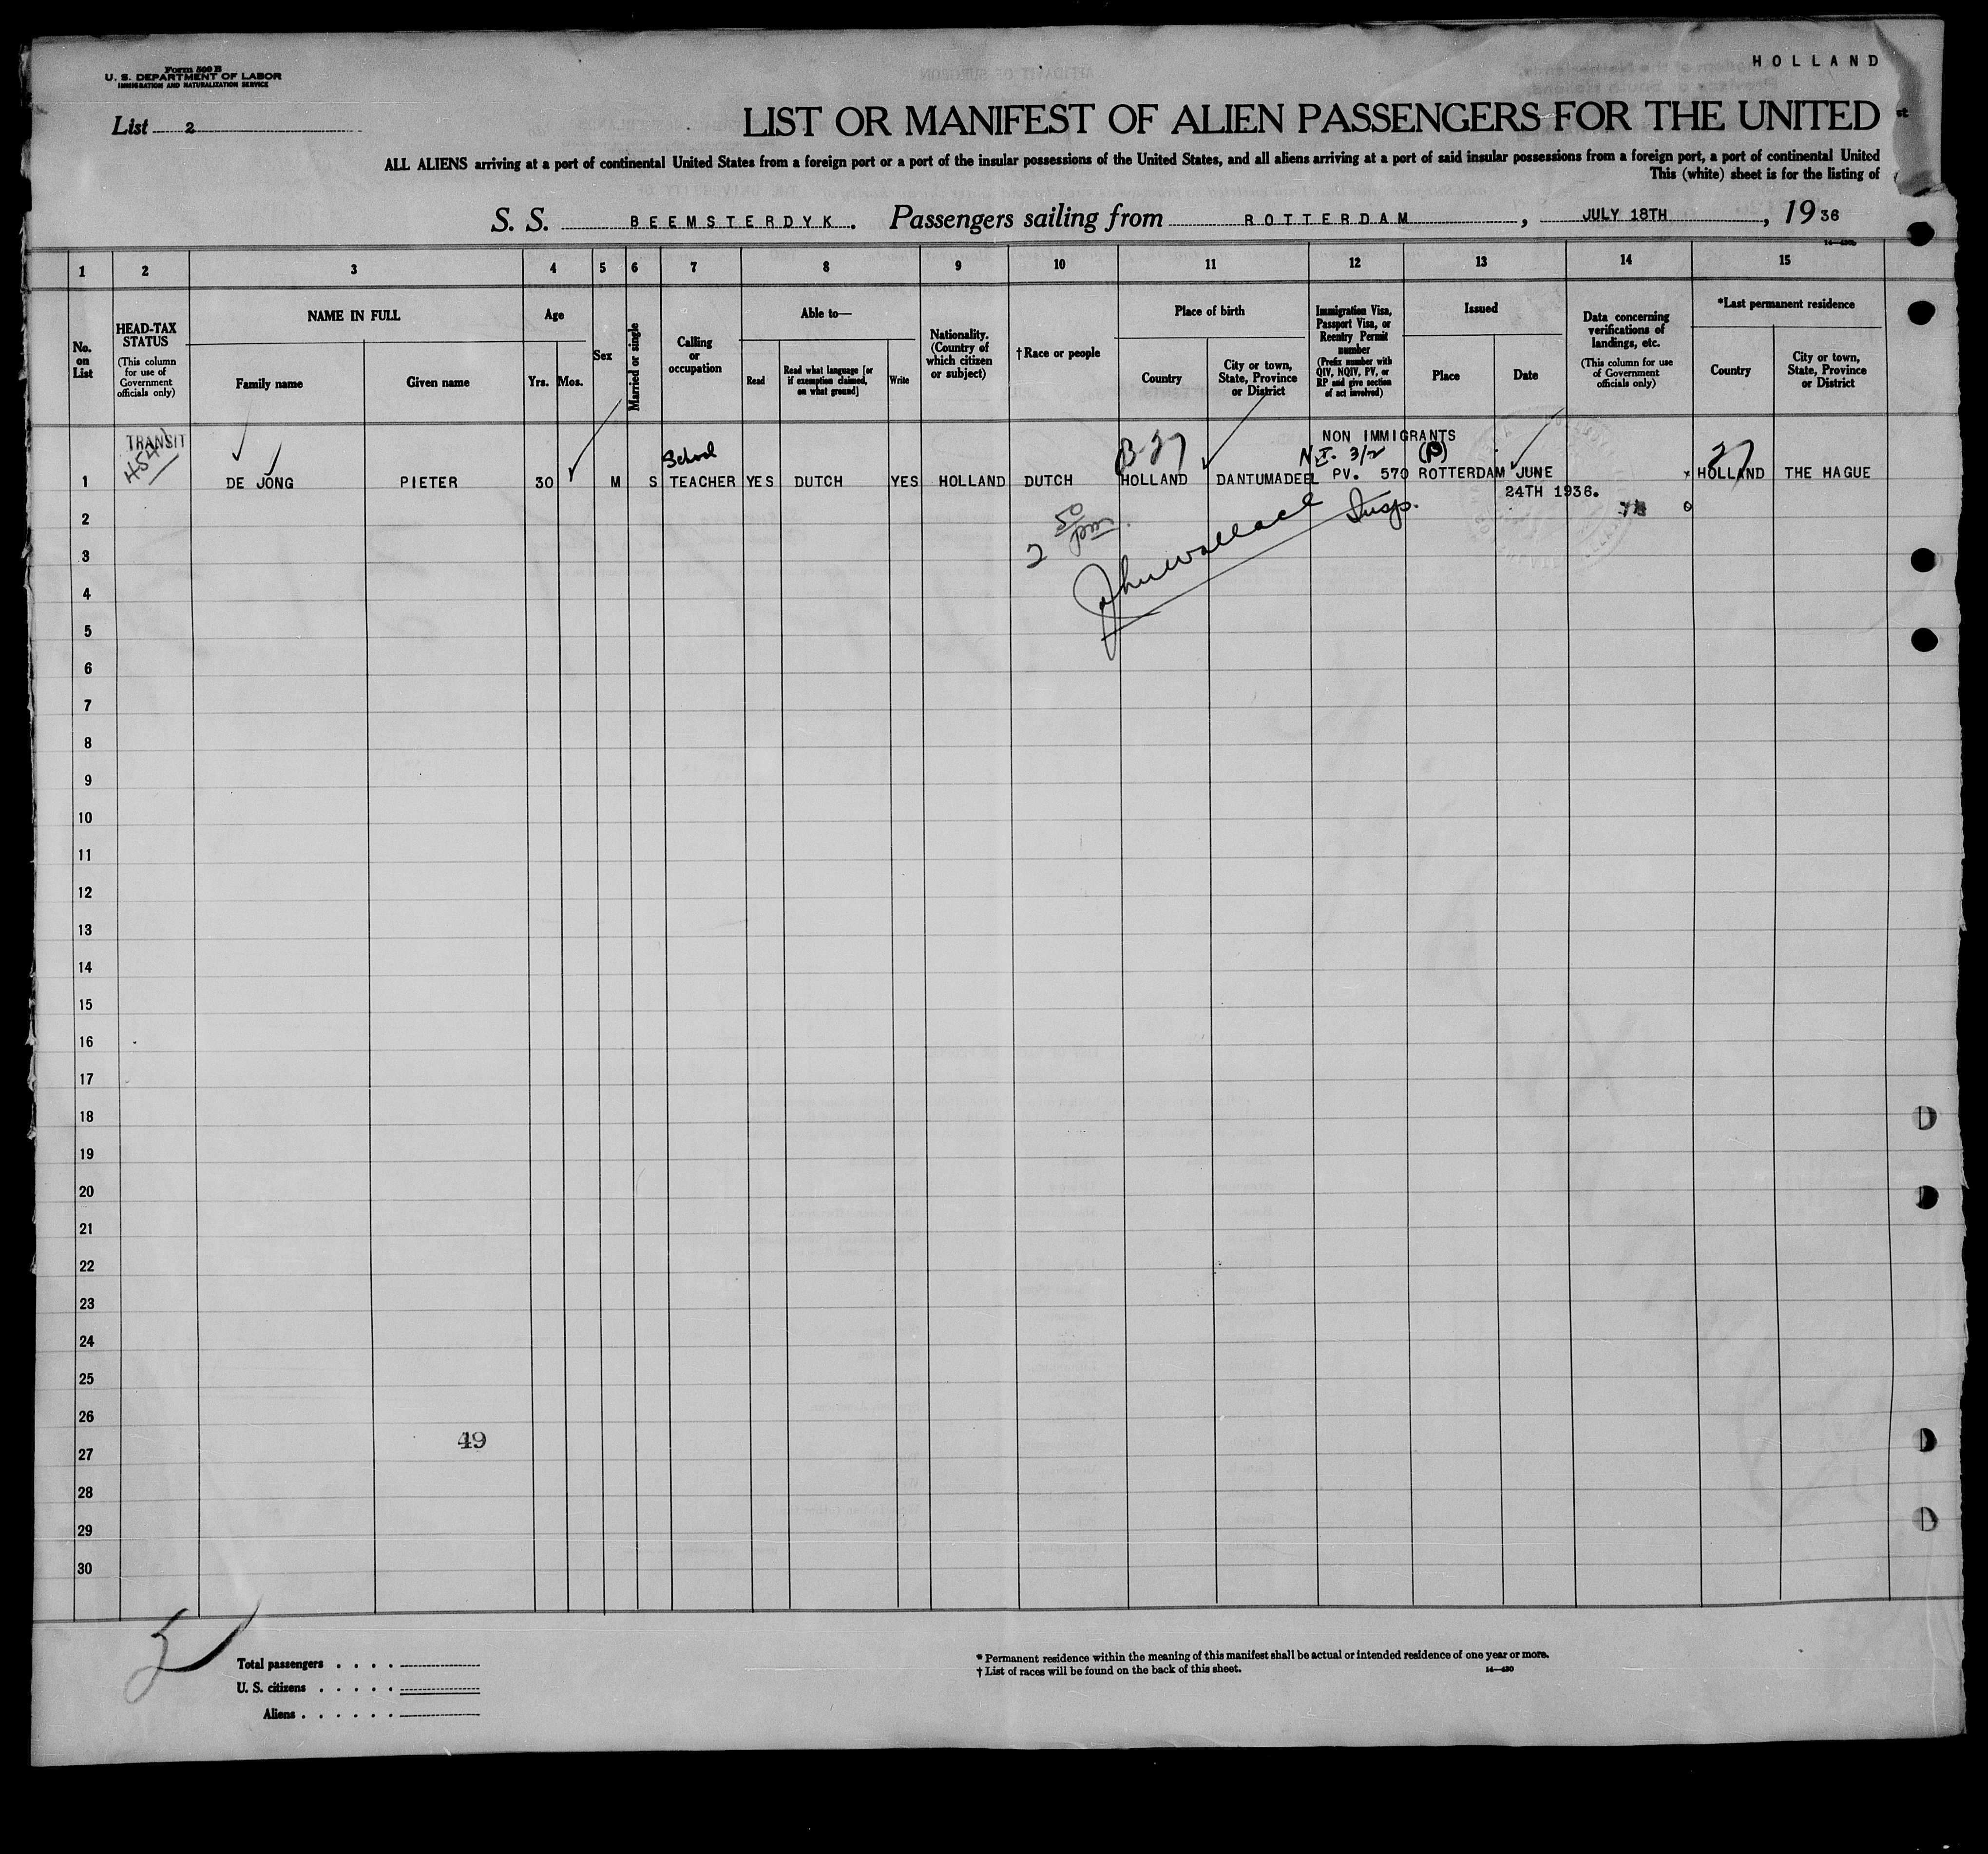 Form 500 B
U. S. DEPARTMENT OF LABOR
IMMIGRATION AND NATURALIZATION SERVICE
HOLLAND
List 2
LIST OR MANIFEST OF ALIEN PASSENGERS FOR THE UNITED
ALL ALIENS arriving at a port of continental United States from a foreign port or a port of the insular possessions of the United States, and all aliens arriving at a port of said insular possessions from a foreign port, a port of continental United
This (white) sheet is for the listing of
S. S. BEEMSTERDYK. Passengers sailing from ROTTERDAM, JULY 18TH, 1936
1 2 3 4 5 6 7 8 9 10 11 12 13 14 15
No. on List
HEAD-TAX STATUS
(This column for use of Government officials only)
NAME IN FULL
Family name
Given name
Age
Yrs. Mos.
Sex
Married or single
Calling or occupation
Able to—
Read
Read what language [or if exemption claimed, on what ground]
Write
Nationality. (Country of which citizen or subject)
† Race or people
Place of birth
Country
City or town, State, Province or District
Immigration Visa, Passport Visa, or Reentry Permit number
(Prefix number with QIV, NQIV, PV, or RP and give section of act involved)
Issued
Place
Date
Data concerning verifications of landings, etc.
(This column for use of Government officials only)
*Last permanent residence
Country
City or town, State, Province or District
TRANSIT
NON IMMIGRANTS
School
B-27
3/2
27
1 DE JONG PIETER 30 M S TEACHER YES DUTCH YES HOLLAND DUTCH HOLLAND DANTUMADEEL PV. 570 ROTTERDAM JUNE
24TH 1936.
x HOLLAND THE HAGUE
2 50 pm
John Wallace Insp.
2
3
4
5
6
7
8
9
10
11
12
13
14
15
16
17
18
19
20
21
22
23
24
25
26
49
27
28
29
30
Total passengers
U. S. citizens
Aliens
* Permanent residence within the meaning of this manifest shall be actual or intended residence of one year or more.
† List of races will be found on the back of this sheet.
14—430